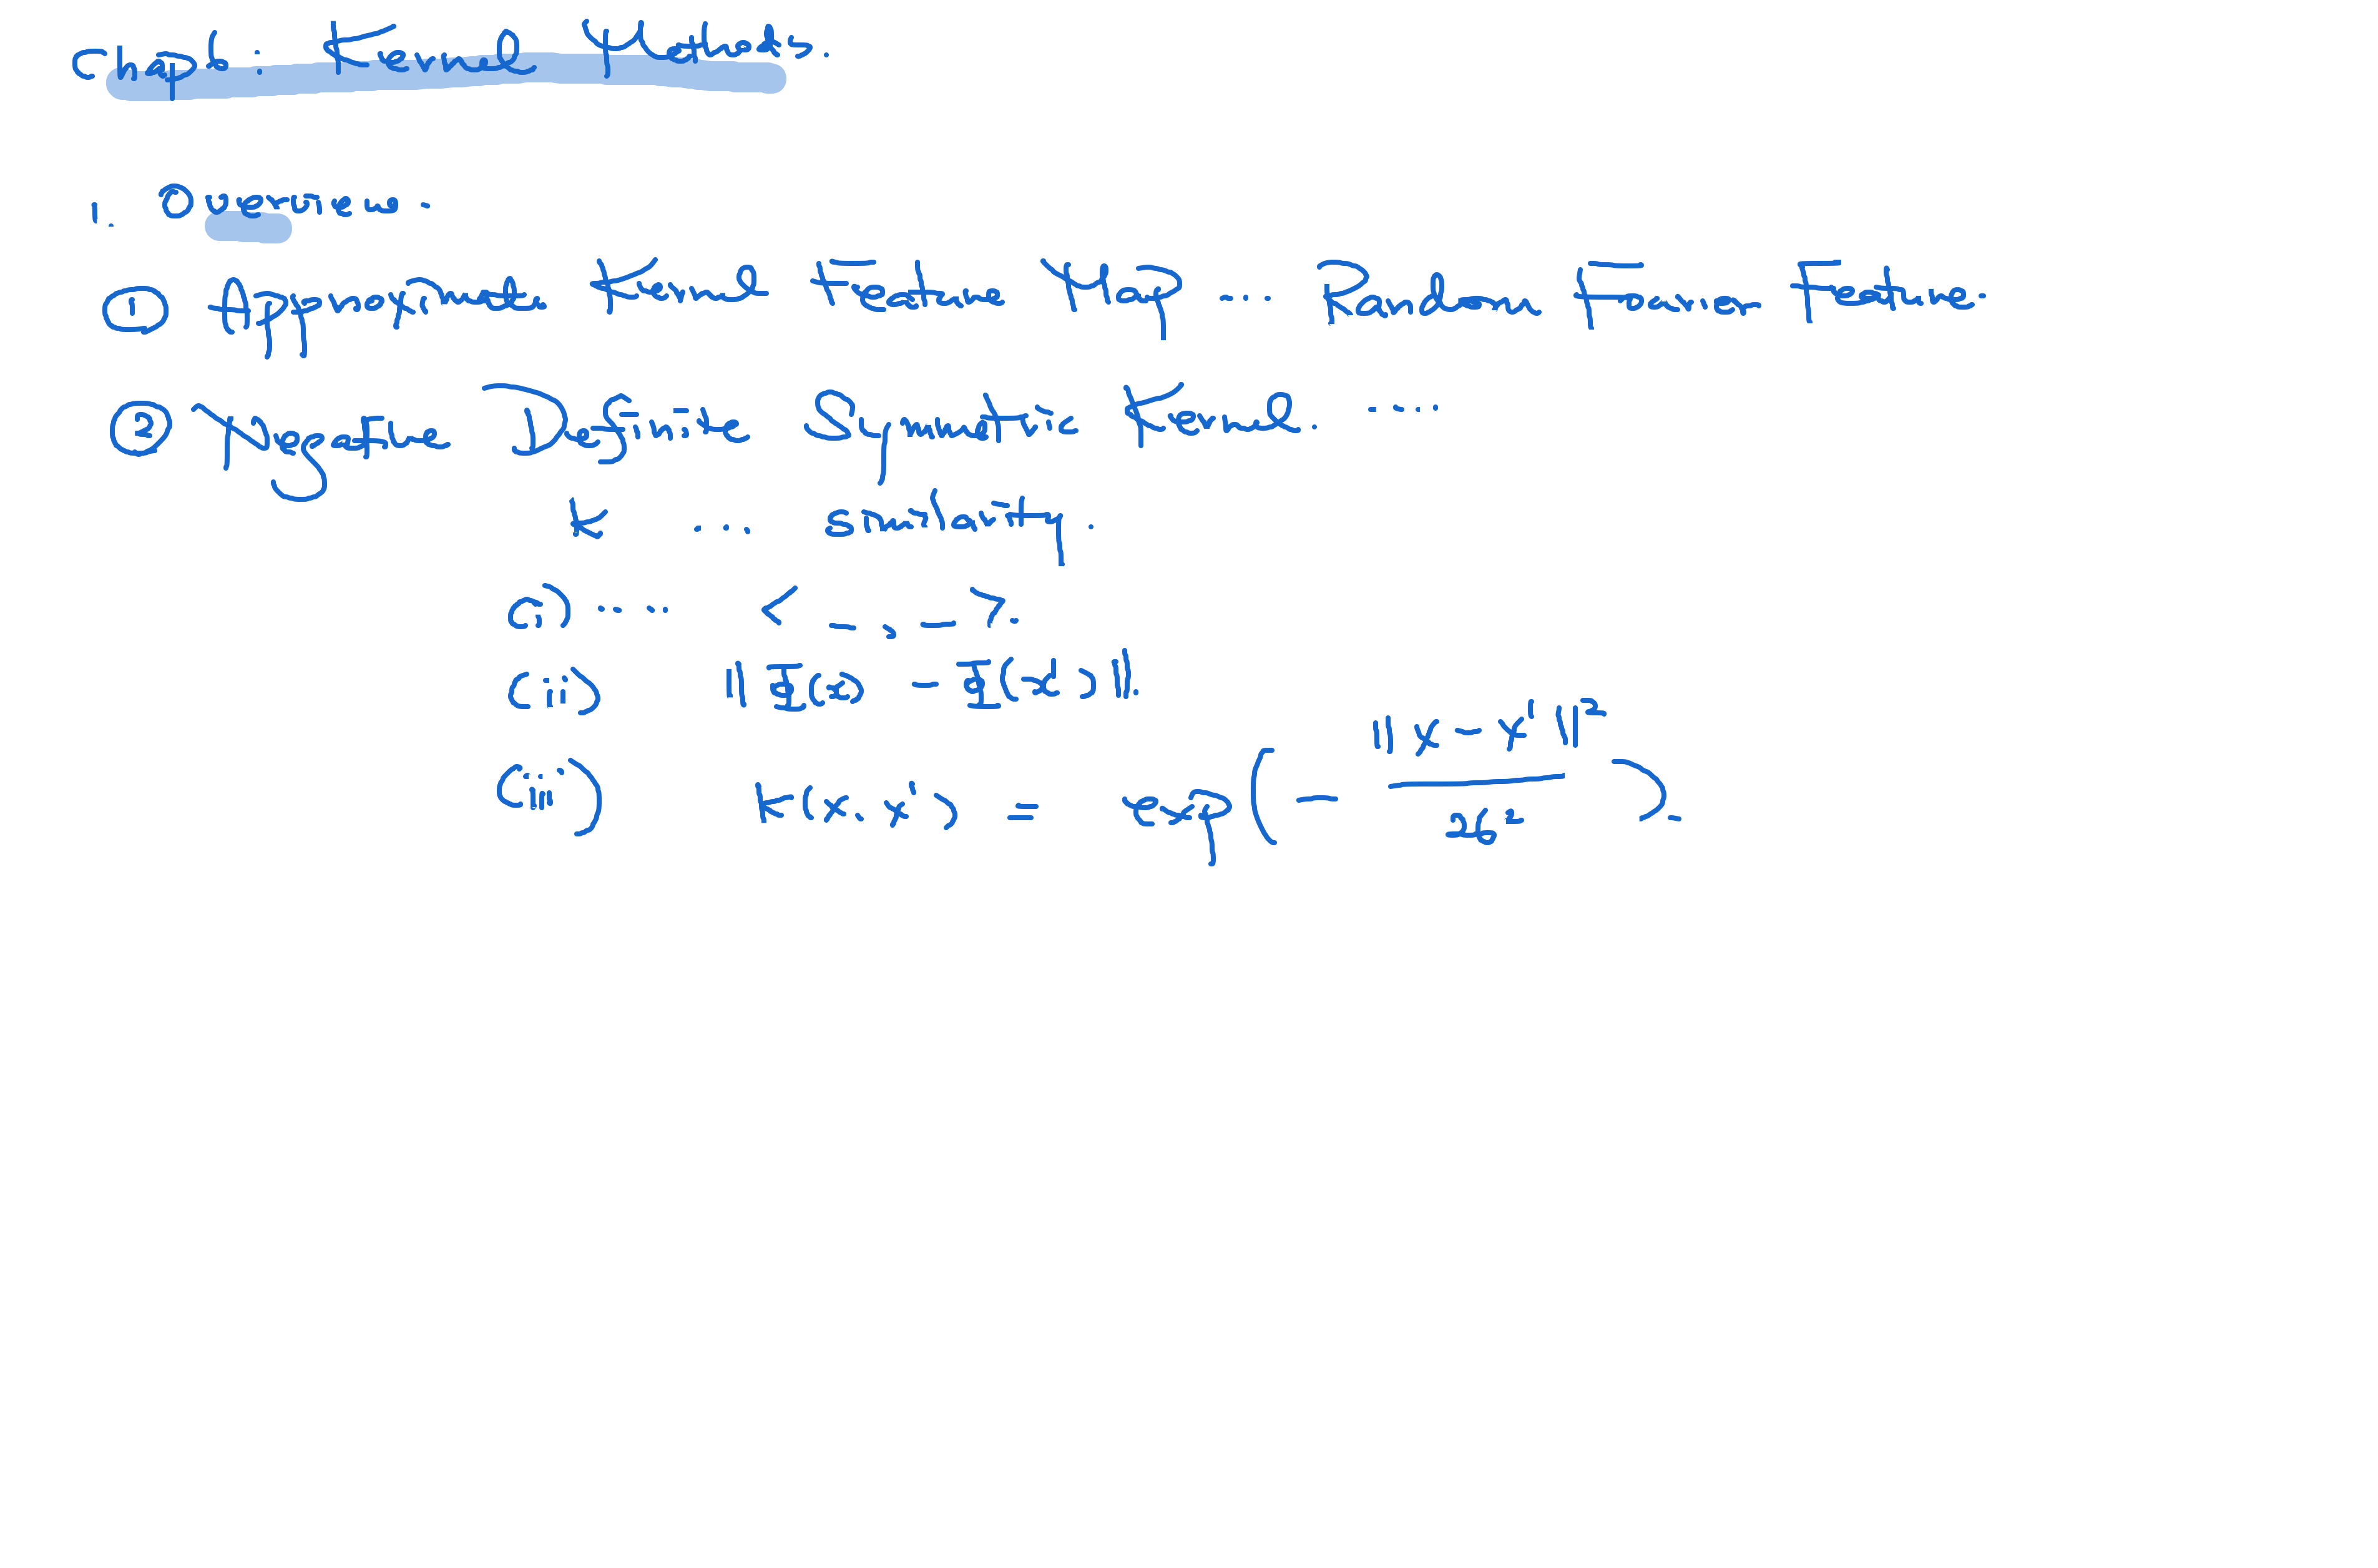 Chap6: Kernel Methods.
1. Overview.
① Approximated Kernel Feature Map ... Random Fourier Feature.
② Negative Definite Symmetric Kernel. ....
K ... similarity.
(i) .... < _ , _ >.
(ii) ‖Φ(x) - Φ(x')‖.
(iii) K(x, x') = exp(- ‖x - x'‖² / 2σ²).